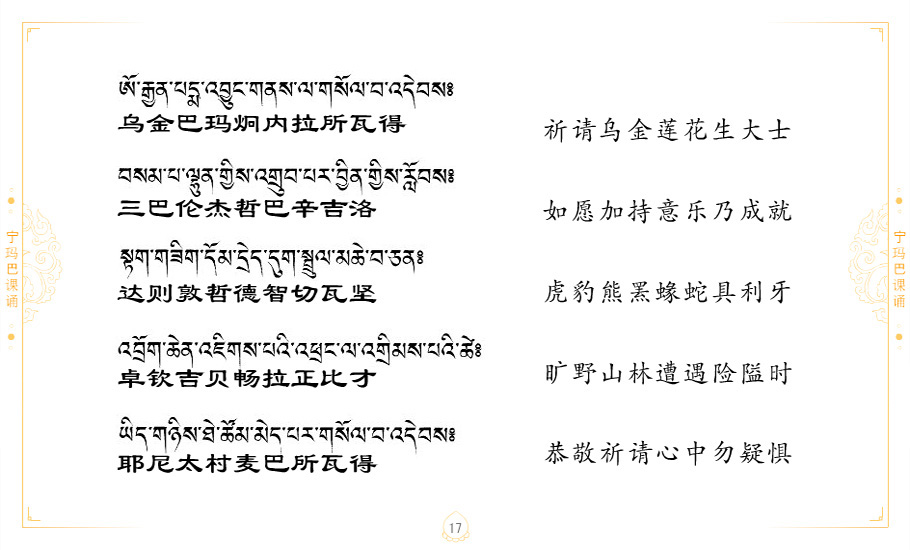 ཨོ་རྒྱན་པདྨ་འབྱུང་གནས་ལ་གསོལ་བ་འདེབས༔
乌金巴玛炯内拉所瓦得
祈请乌金莲花生大士
བསམ་པ་ལྷུན་གྱིས་འགྲུབ་པར་བྱིན་གྱིས་རློབས༔
三巴伦杰哲巴辛吉洛
如愿加持意乐乃成就
སྟག་གཟིག་དོམ་དྲེད་དུག་སྦྲུལ་མཆེ་བ་ཅན༔
达则敦哲德智切瓦坚
虎豹熊罴蝝蛇具利牙
འབྲོག་ཆེན་འཇིགས་པའི་འཕྲང་ལ་འགྲིམས་པའི་ཚེ༔
卓钦吉贝畅拉正比才
旷野山林遭遇险隘时
ཡིད་གཉིས་ཐེ་ཚོམ་མེད་པར་གསོལ་བ་འདེབས༔
耶尼太村麦巴所瓦得
恭敬祈请心中勿疑惧
宁玛巴课诵
宁玛巴课诵
17